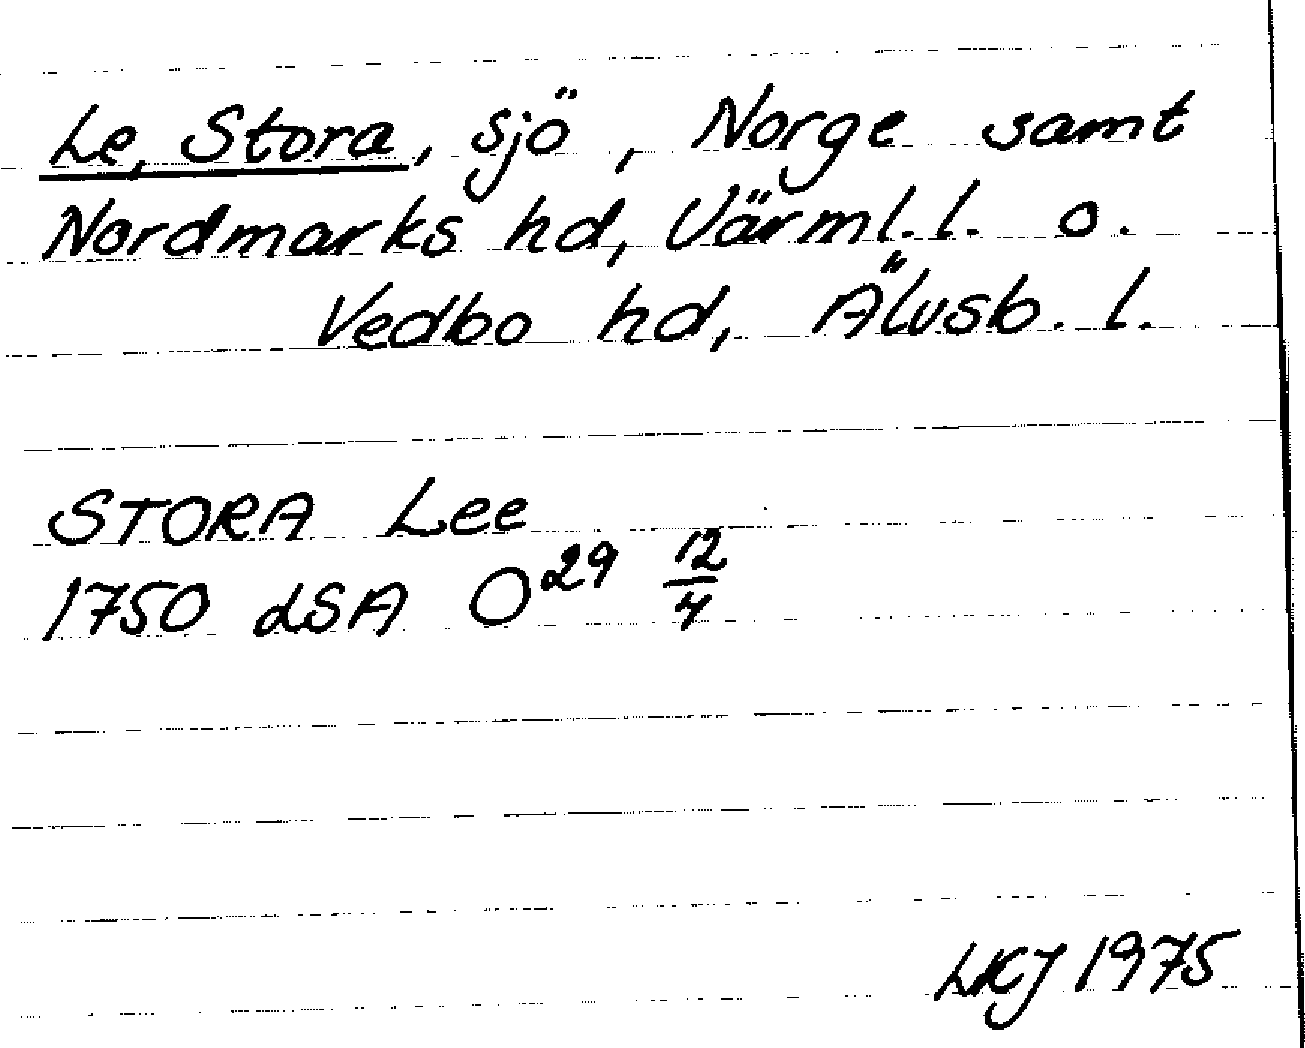 Le, Stora, sjö, Norge samt
Nordmarks hd, Värml. l. o.
Vedbo hd, Älvsb. l.
STORA Lee
1750 LSA O²⁹ 12/4
LKJ 1975